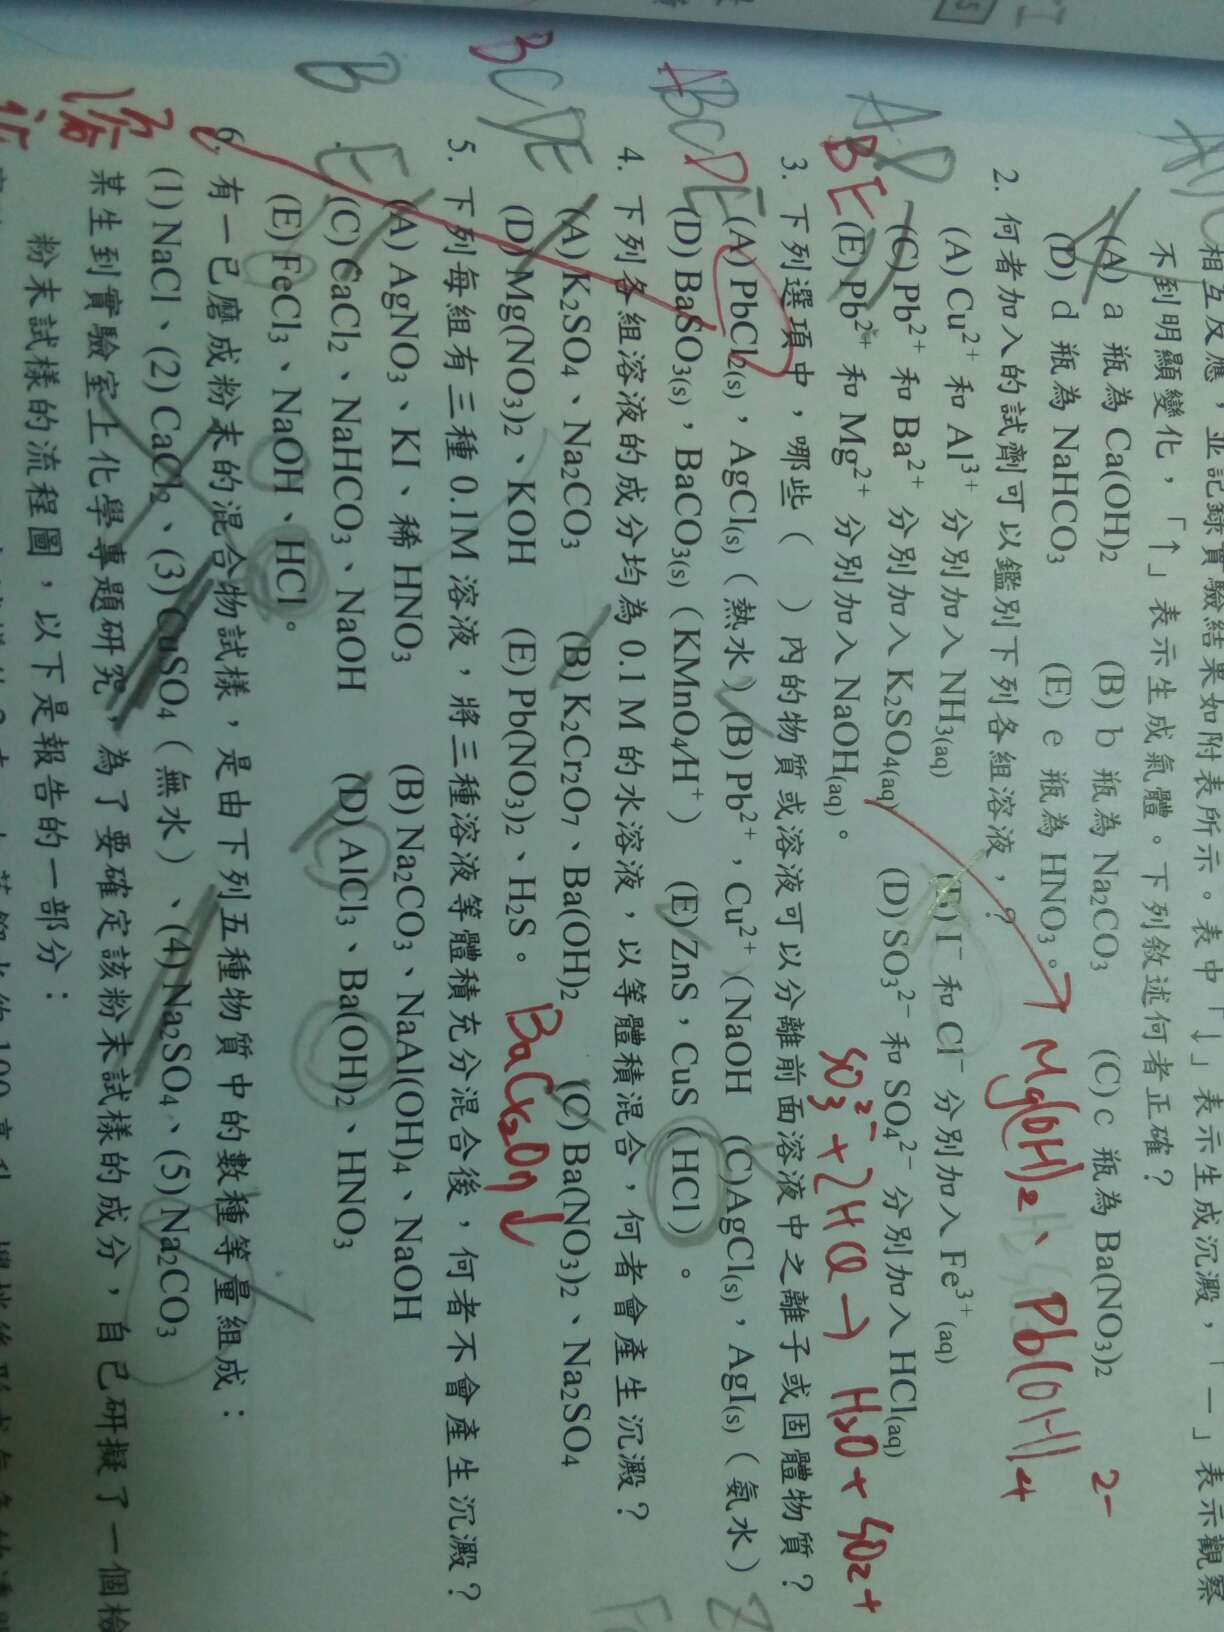 相互反應，並記錄實驗結果如附表所示。表中「↓」表示生成沉澱，「—」表示觀察
不到明顯變化，「↑」表示生成氣體。下列敘述何者正確？
(A) a 瓶為 Ca(OH)2 (B) b 瓶為 Na2CO3 (C) c 瓶為 Ba(NO3)2
(D) d 瓶為 NaHCO3 (E) e 瓶為 HNO3。
Mg(OH)2、Pb(OH)4 2-
AD
BE
2. 何者加入的試劑可以鑑別下列各組溶液，？
(A) Cu2+ 和 Al3+ 分別加入 NH3(aq) (B) I− 和 Cl− 分別加入 Fe3+(aq)
(C) Pb2+ 和 Ba2+ 分別加入 K2SO4(aq) (D) SO32− 和 SO42− 分別加入 HCl(aq)
(E) Pb2+ 和 Mg2+ 分別加入 NaOH(aq)。
SO32- + 2HCl → H2O + SO2 +
ABCDE
3. 下列選項中，哪些（ ）內的物質或溶液可以分離前面溶液中之離子或固體物質？
(A) PbCl2(s)，AgCl(s)（熱水）(B) Pb2+，Cu2+（NaOH (C)AgCl(s)，AgI(s)（氨水）
(D) BaSO3(s)，BaCO3(s)（KMnO4/H+） (E) ZnS，CuS（HCl）。
BCDE
4. 下列各組溶液的成分均為 0.1 M 的水溶液，以等體積混合，何者會產生沉澱？
(A) K2SO4、Na2CO3 (B) K2Cr2O7、Ba(OH)2 (C) Ba(NO3)2、Na2SO4
(D) Mg(NO3)2、KOH (E) Pb(NO3)2、H2S。
B
E
5. 下列每組有三種 0.1M 溶液，將三種溶液等體積充分混合後，何者不會產生沉澱？
(A) AgNO3、KI、稀 HNO3 (B) Na2CO3、NaAl(OH)4、NaOH
(C) CaCl2、NaHCO3、NaOH (D) AlCl3、Ba(OH)2、HNO3
(E) FeCl3、NaOH、HCl。
6. 有一已磨成粉末的混合物試樣，是由下列五種物質中的數種等量組成：
(1) NaCl、(2) CaCl2、(3) CuSO4（無水）、(4) Na2SO4、(5) Na2CO3
某生到實驗室上化學專題研究，為了要確定該粉末試樣的成分，自己研擬了一個檢
粉末試樣的流程圖，以下是報告的一部分：